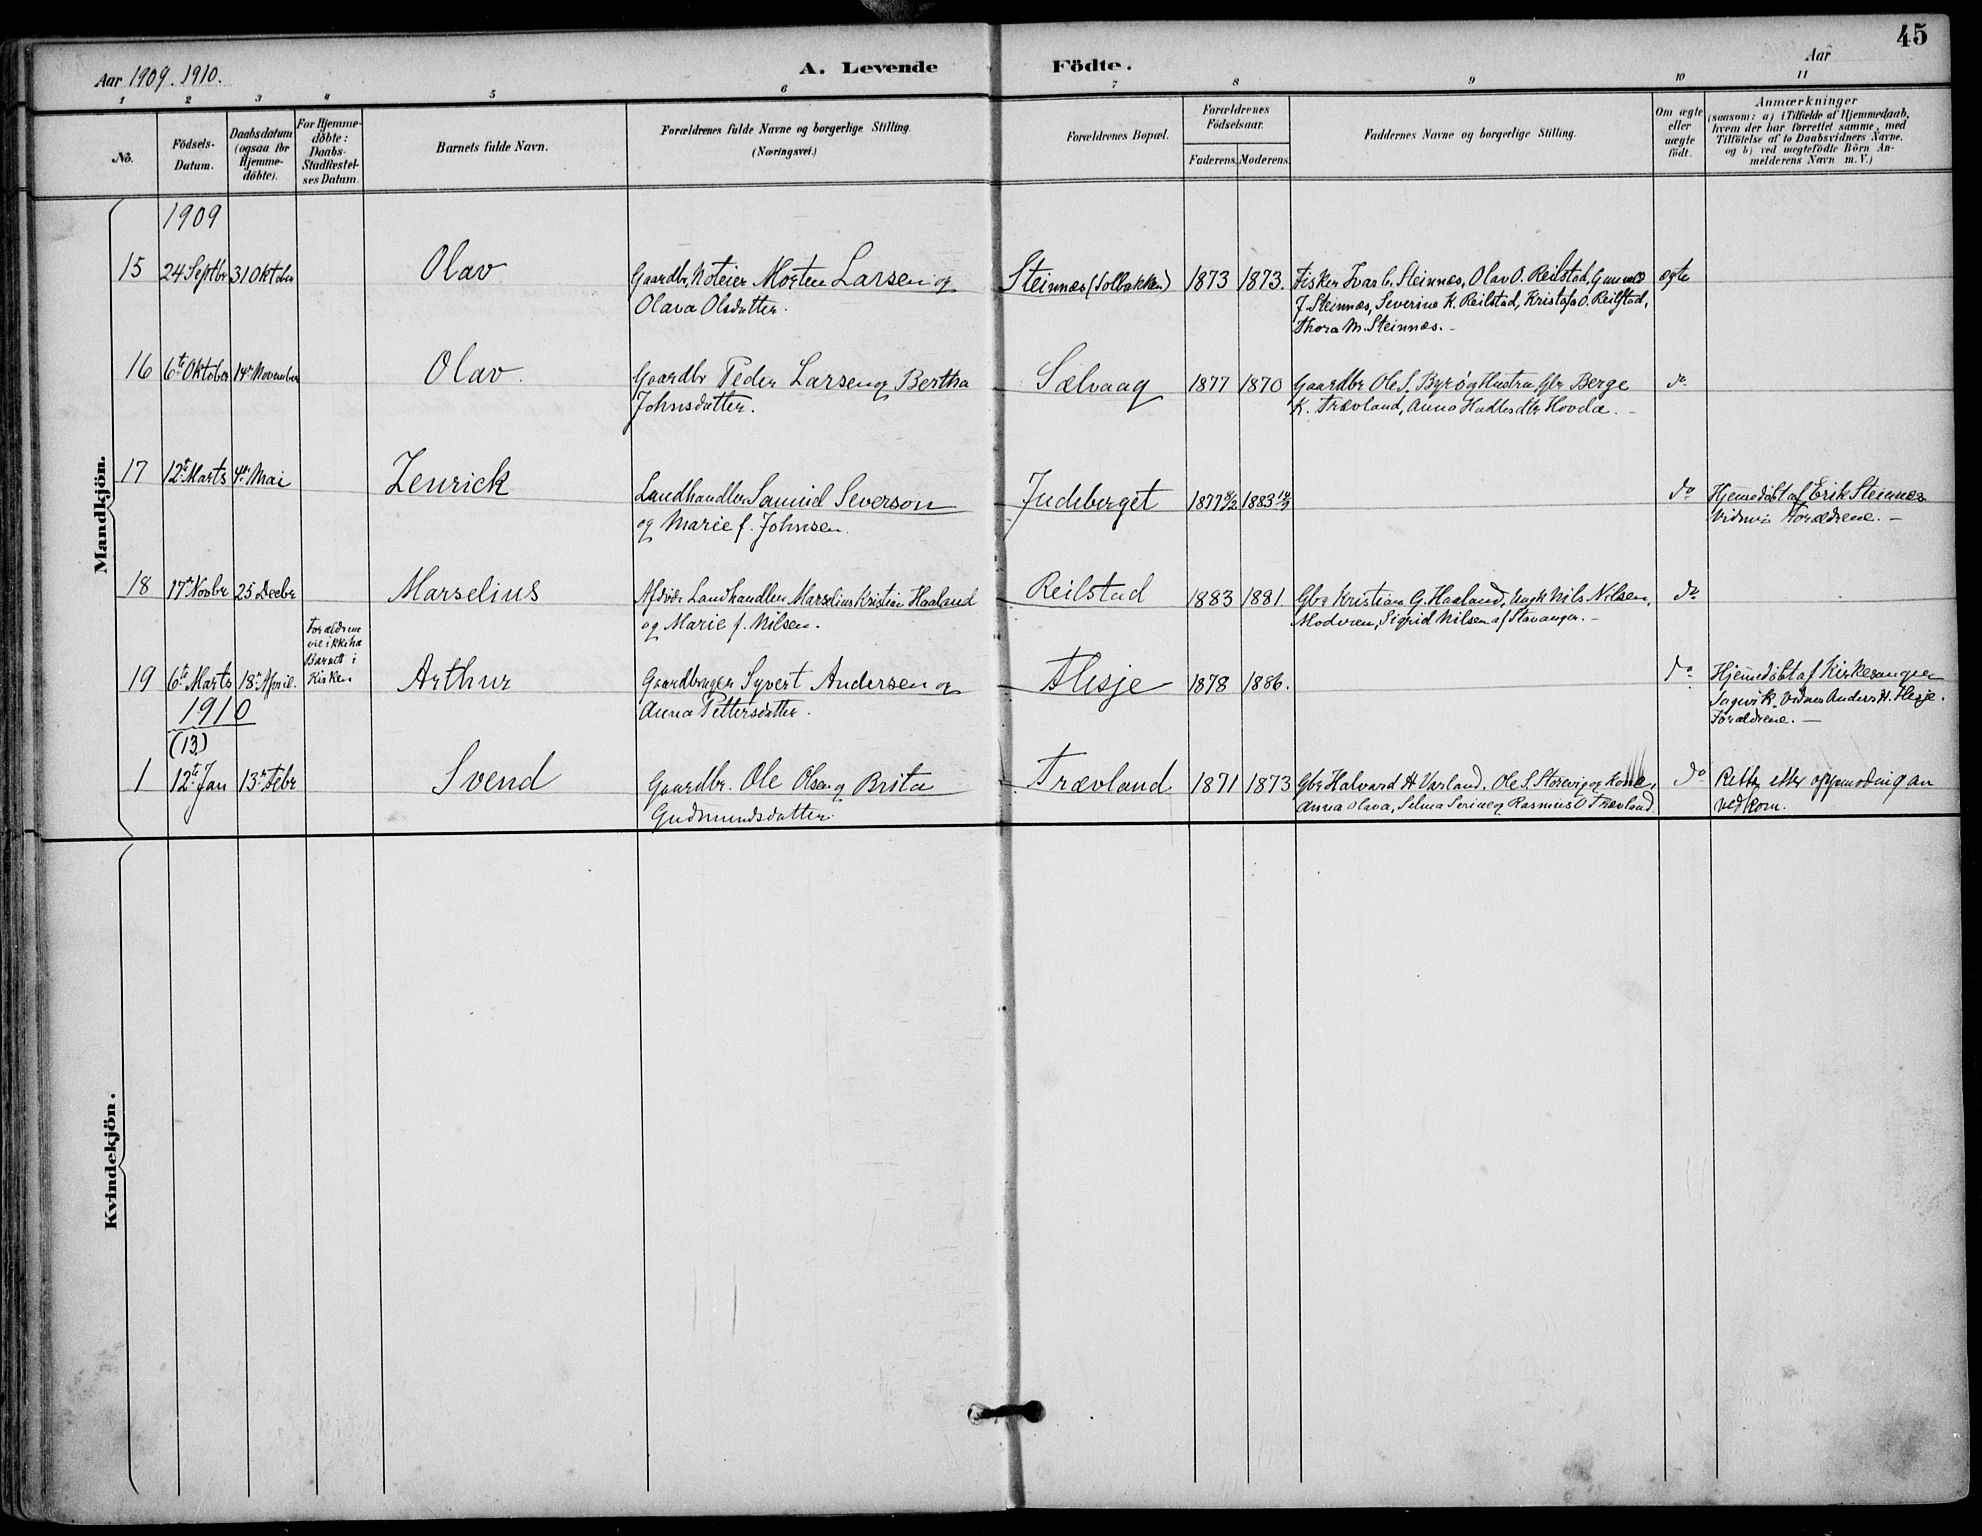 45
Aar 1909. 1910.
A. Levende Födte.
Aar
1 2 3 4 5 6 7 8 9 10 11
No.
Födsels-
Datum.
Daabsdatum
(ogsaa for
Hjemme-
döbte).
For Hjemme-
döbte:
Daabs-
Stadfæstel-
ses Datum.
Barnets fulde Navn.
Forældrenes fulde Navne og borgerlige Stilling.
(Næringsvei.)
Forældrenes Bopæl.
Forældrenes
Födselsaar.
Faderens. Moderens.
Faddernes Navne og borgerlige Stilling.
Om ægte
eller
uægte
født.
Anmærkninger
(saasom: a) i Tilfælde af Hjemmedaab,
hvem der har forrettet samme, med
Tilföielse af to Daabsvidners Navne.
og b) ved uægtefödte Börn An-
melderens Navn m. V.)
Mandkjön.
1909
15 24 Septbr 31 Oktober Olav
Gaardbr, Noteier Morten Larsen og
Olava Olsdatter.
Steinnæs (Solbakken) 1873 1873.
Fisker Ivar Steinnæs, Olav O. Reilstad, Gunvald
J. Steinnæs, Severine K. Reilstad, Kristofa O. Reilstad,
Thora M. Steinnæs. -
ægte
16 6te Oktober 14de November Olav.
Gaardbr Peder Larsen og Bertha
Johnsdatter.
Sælvaag 1877 1870
Gaardbr Ole S. Byrø og Hustru, Gbr Berge
K. Trævland, Anna Hadlesdtr Hovda. -
do
17 12te Marts 4de Mai Zenrick
Landhandler Samuel Severson
og Marie f. Johnsen.
Judeberget 1877 1883
do
Hjemedöbt af Erik Steinnes
Vidner Forældrene. -
18 17de Novbr 25 Decbr Marselius
Landhandler Marselius Kristian Haaland
og Marie f. Nilsen.
Reilstad 1883 1881
Gbr Kristian G. Haaland, Ungk Nils Nilsen,
Moderen, Sigrid Nilsen af Stavanger. -
do
Forældrene
vil ikke ha
Barnet i
Kirken
19 6te Marts 18de April. Arthur
Gaardbruger Syvert Andersen og
Anna Pettersdatter.
Hesje 1878 1886.
do
Hjemedöbt af Kirkesanger
Sagvik. Vidner Anders H. Hesje.
Forældrene. -
1910
(13)
1 12te Jan 13de Febr Svend
Gaardbr. Ole Olsen og Brita
Gudmundsdatter.
Trævland 1871 1873
Gbr Halvard H Varland. Ole S. Storevig og Kone,
Anna Olava, Selma Serine og Rasmus O Trævland.
do
Rettet efter opfmodning an
vedkom.
Kvindekjön.